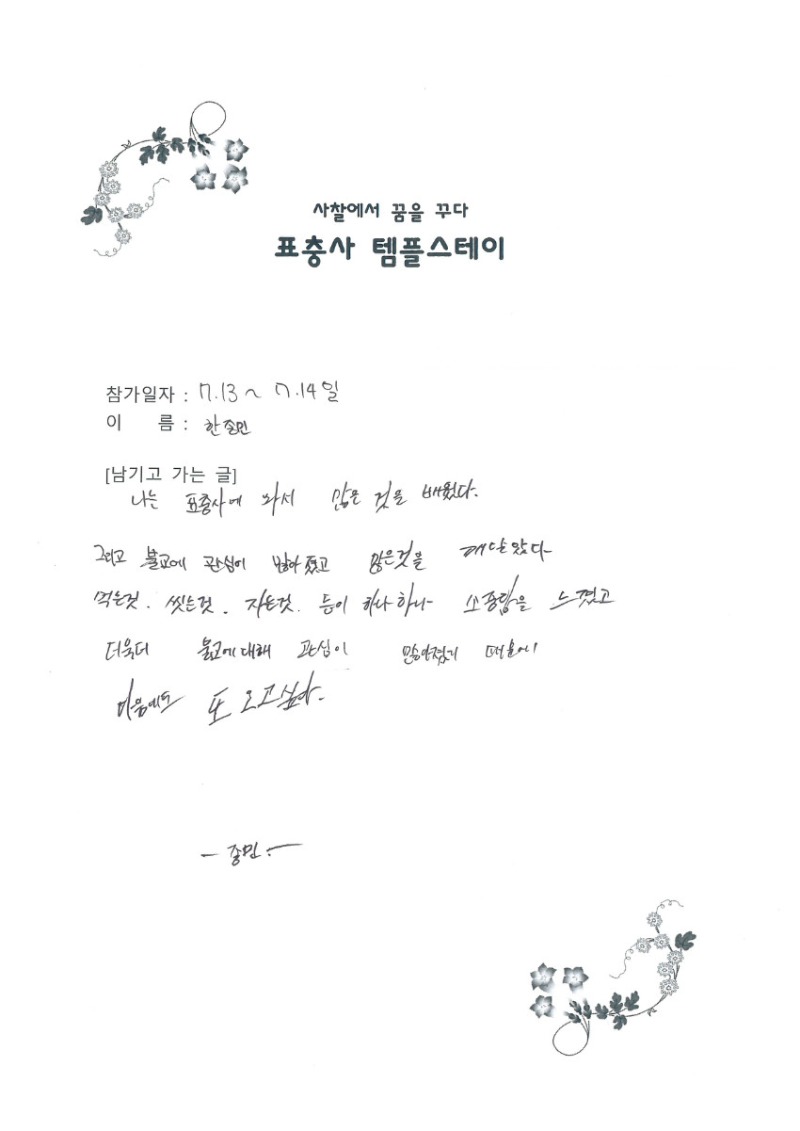 사찰에서 꿈을 꾸다
표충사 템플스테이
참가일자 : 7.13 ~ 7.14일
이 름 : 한종민
[남기고 가는 글]
나는 표충사에 와서 많은 것을 배웠다.
그리고 불교에 관심이 많아졌고 많은것을 깨달았다
먹는것. 씻는것. 자는것. 등이 하나하나 소중함을 느꼈고
더욱더 불교에대해 관심이 많아졌기 때문에
다음에도 또 오고싶다.
- 종민. -